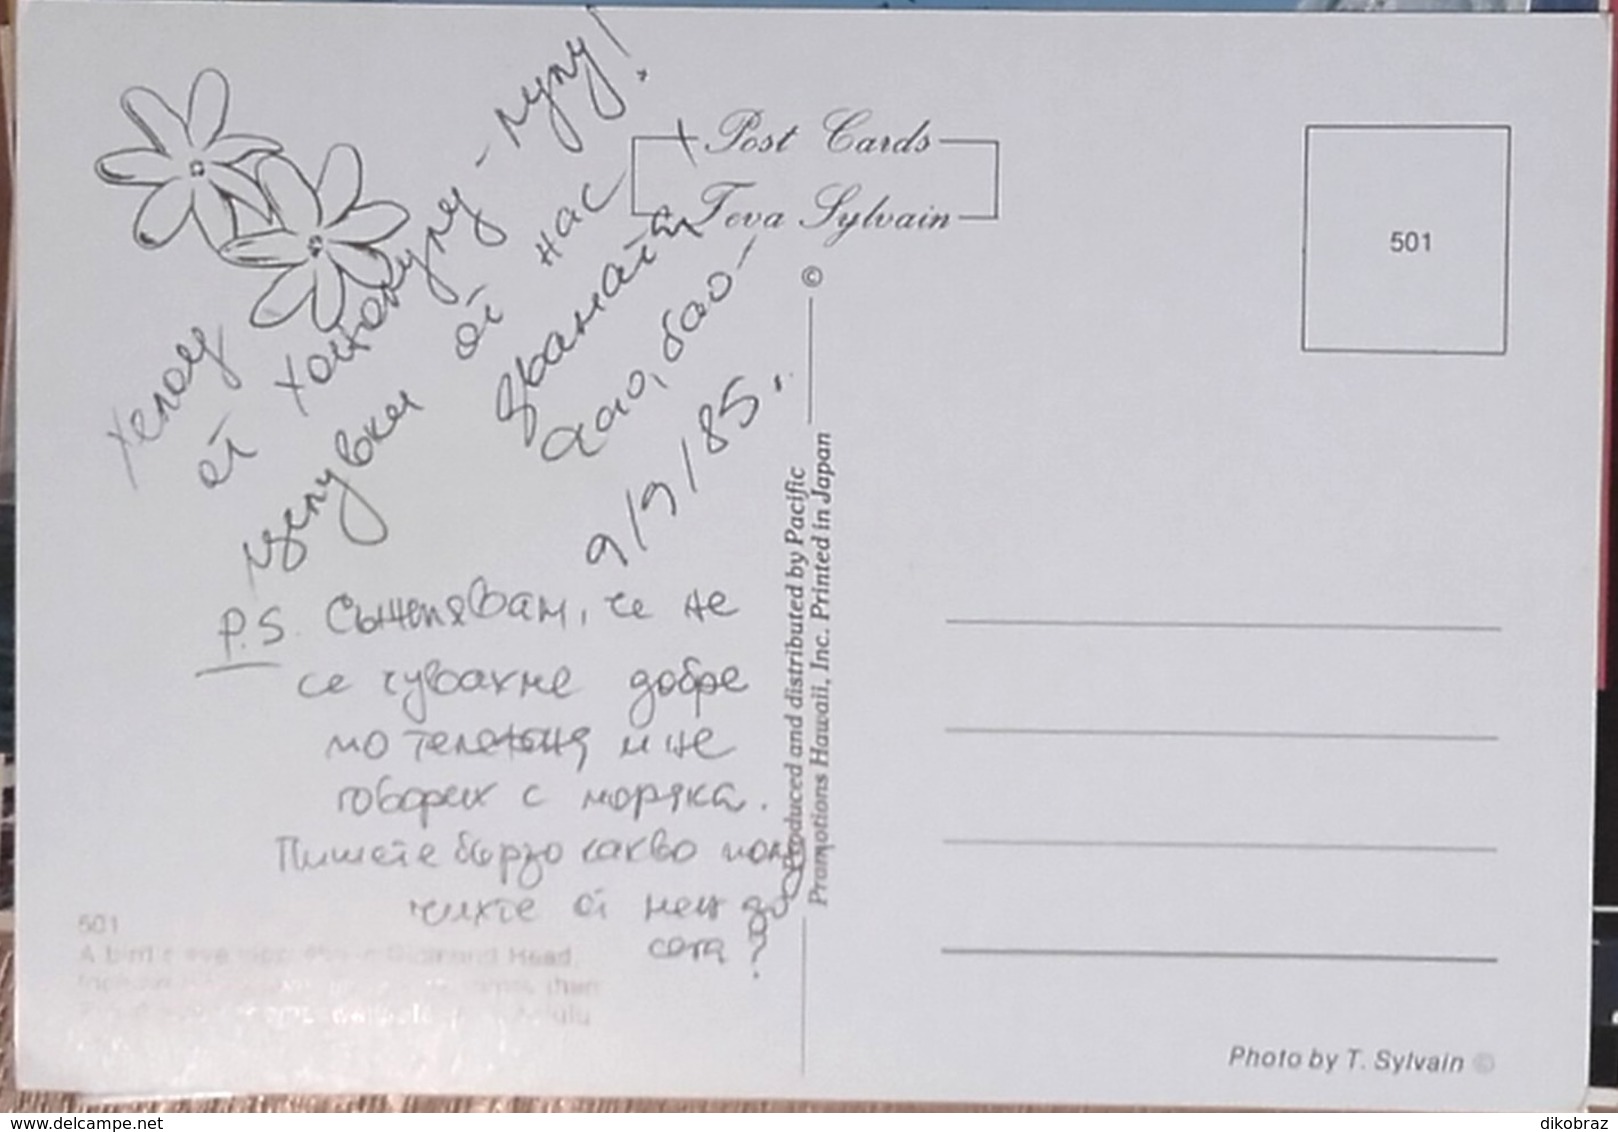 Хелоу
от Хонолулу - лулу!
целувки от нас
+
Дао, бао -
9/9/85.
P.S. Съжалявам, че не
се чувахме добре
по телефона и не
говорих с моряка.
Пишете бързо какво полу
чихте от нещ до
сега?
Post Cards
Teva Sylvain
©
501
Produced and distributed by Pacific
Promotions Hawaii, Inc. Printed in Japan
501
A bird's eye view Diamond Head,
than
Photo by T. Sylvain ©
www.delcampe.net
dikobraz